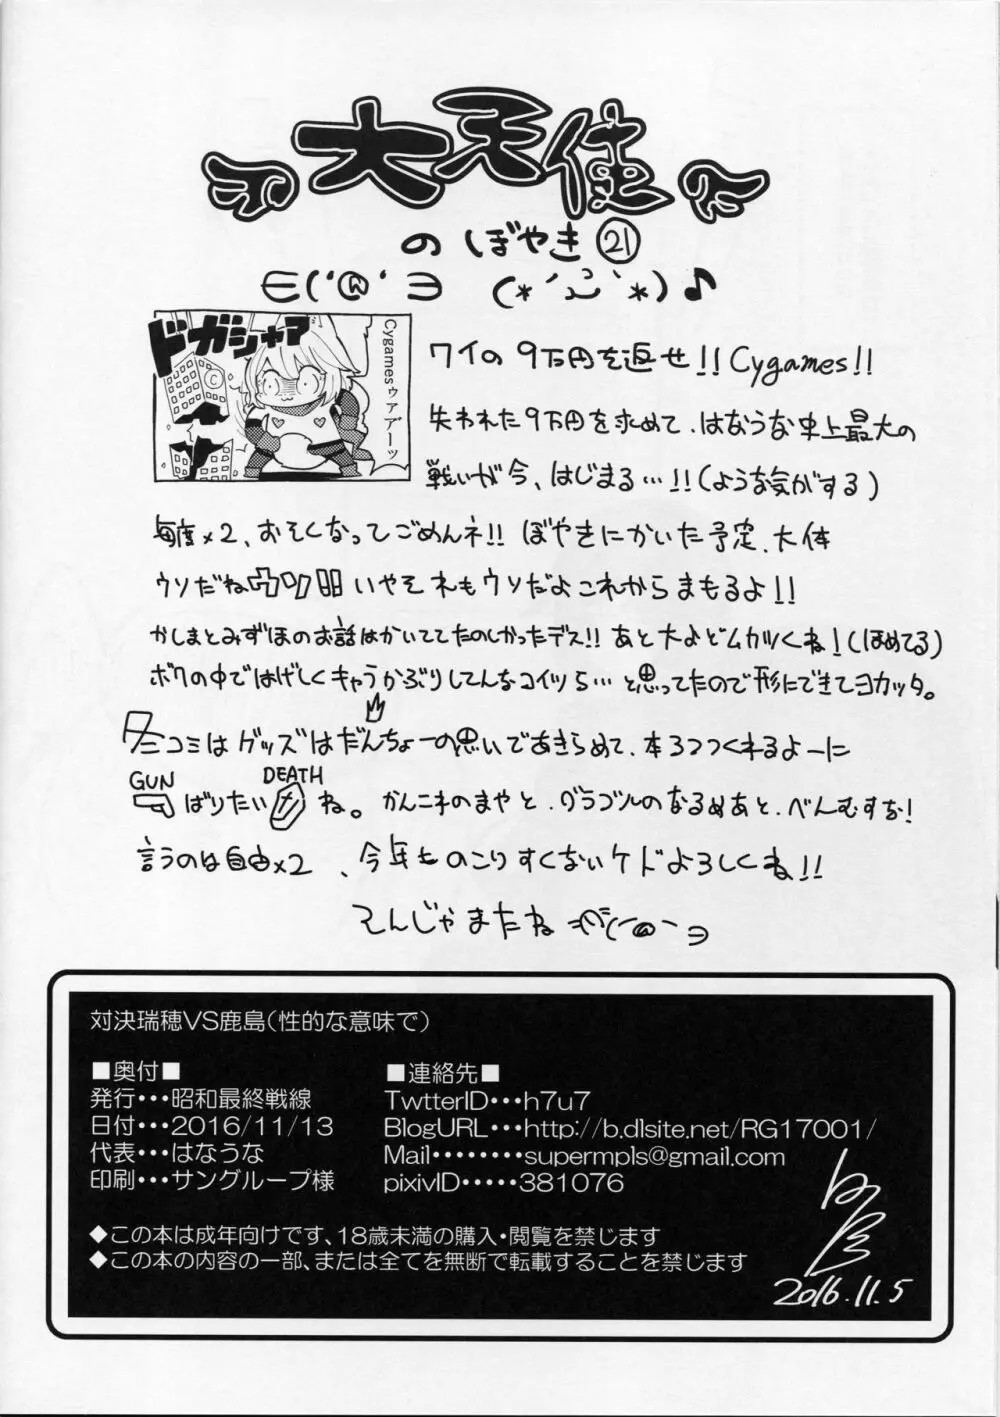 大天使
のぼやき㉑
∈('@'∋ (*´ڡ`*)♪
ドガシャア
Cygamesゥアアーッ
ワイの9万円を返せ!!Cygames!!
失われた9万円を求めて、はなうな史上最大の
戦いが今、はじまる…!!(ような気がする)
毎度×2、おそくなってごめんネ!! ぼやきにかいた予定、大体
ウソだねウソ!!いやそれもウソだよこれからまもるよ!!
かしまとみずほのお話はかいててたのしかったデス!! あと大よどムカツくね!(ほめてる)
ボクの中ではげしくキャラかぶりしてんなコイツら…と思ってたので形にできてヨカッタ。
冬コミはグッズはだんちょーの思いであきらめて、本3つつくれるよーに
GUN DEATH
ばりたい ね。かんこれのまやと、グラブルのなるめあと、べんむすな!
言うのは自由×2、今年ものこりすくないケドよろしくね!!
そんじゃまたね
対決瑞穂VS鹿島(性的な意味で)
■奥付■
発行・・・昭和最終戦線
日付・・・2016/11/13
代表・・・はなうな
印刷・・・サングループ様
■連絡先■
TwtterID・・・h7u7
BlogURL・・・http://b.dlsite.net/RG17001/
Mail・・・・・・・・supermpls@gmail.com
pixivID・・・・・381076
◆この本は成年向けです、18歳未満の購入・閲覧を禁じます
◆この本の内容の一部、または全てを無断で転載することを禁じます
2016.11.5